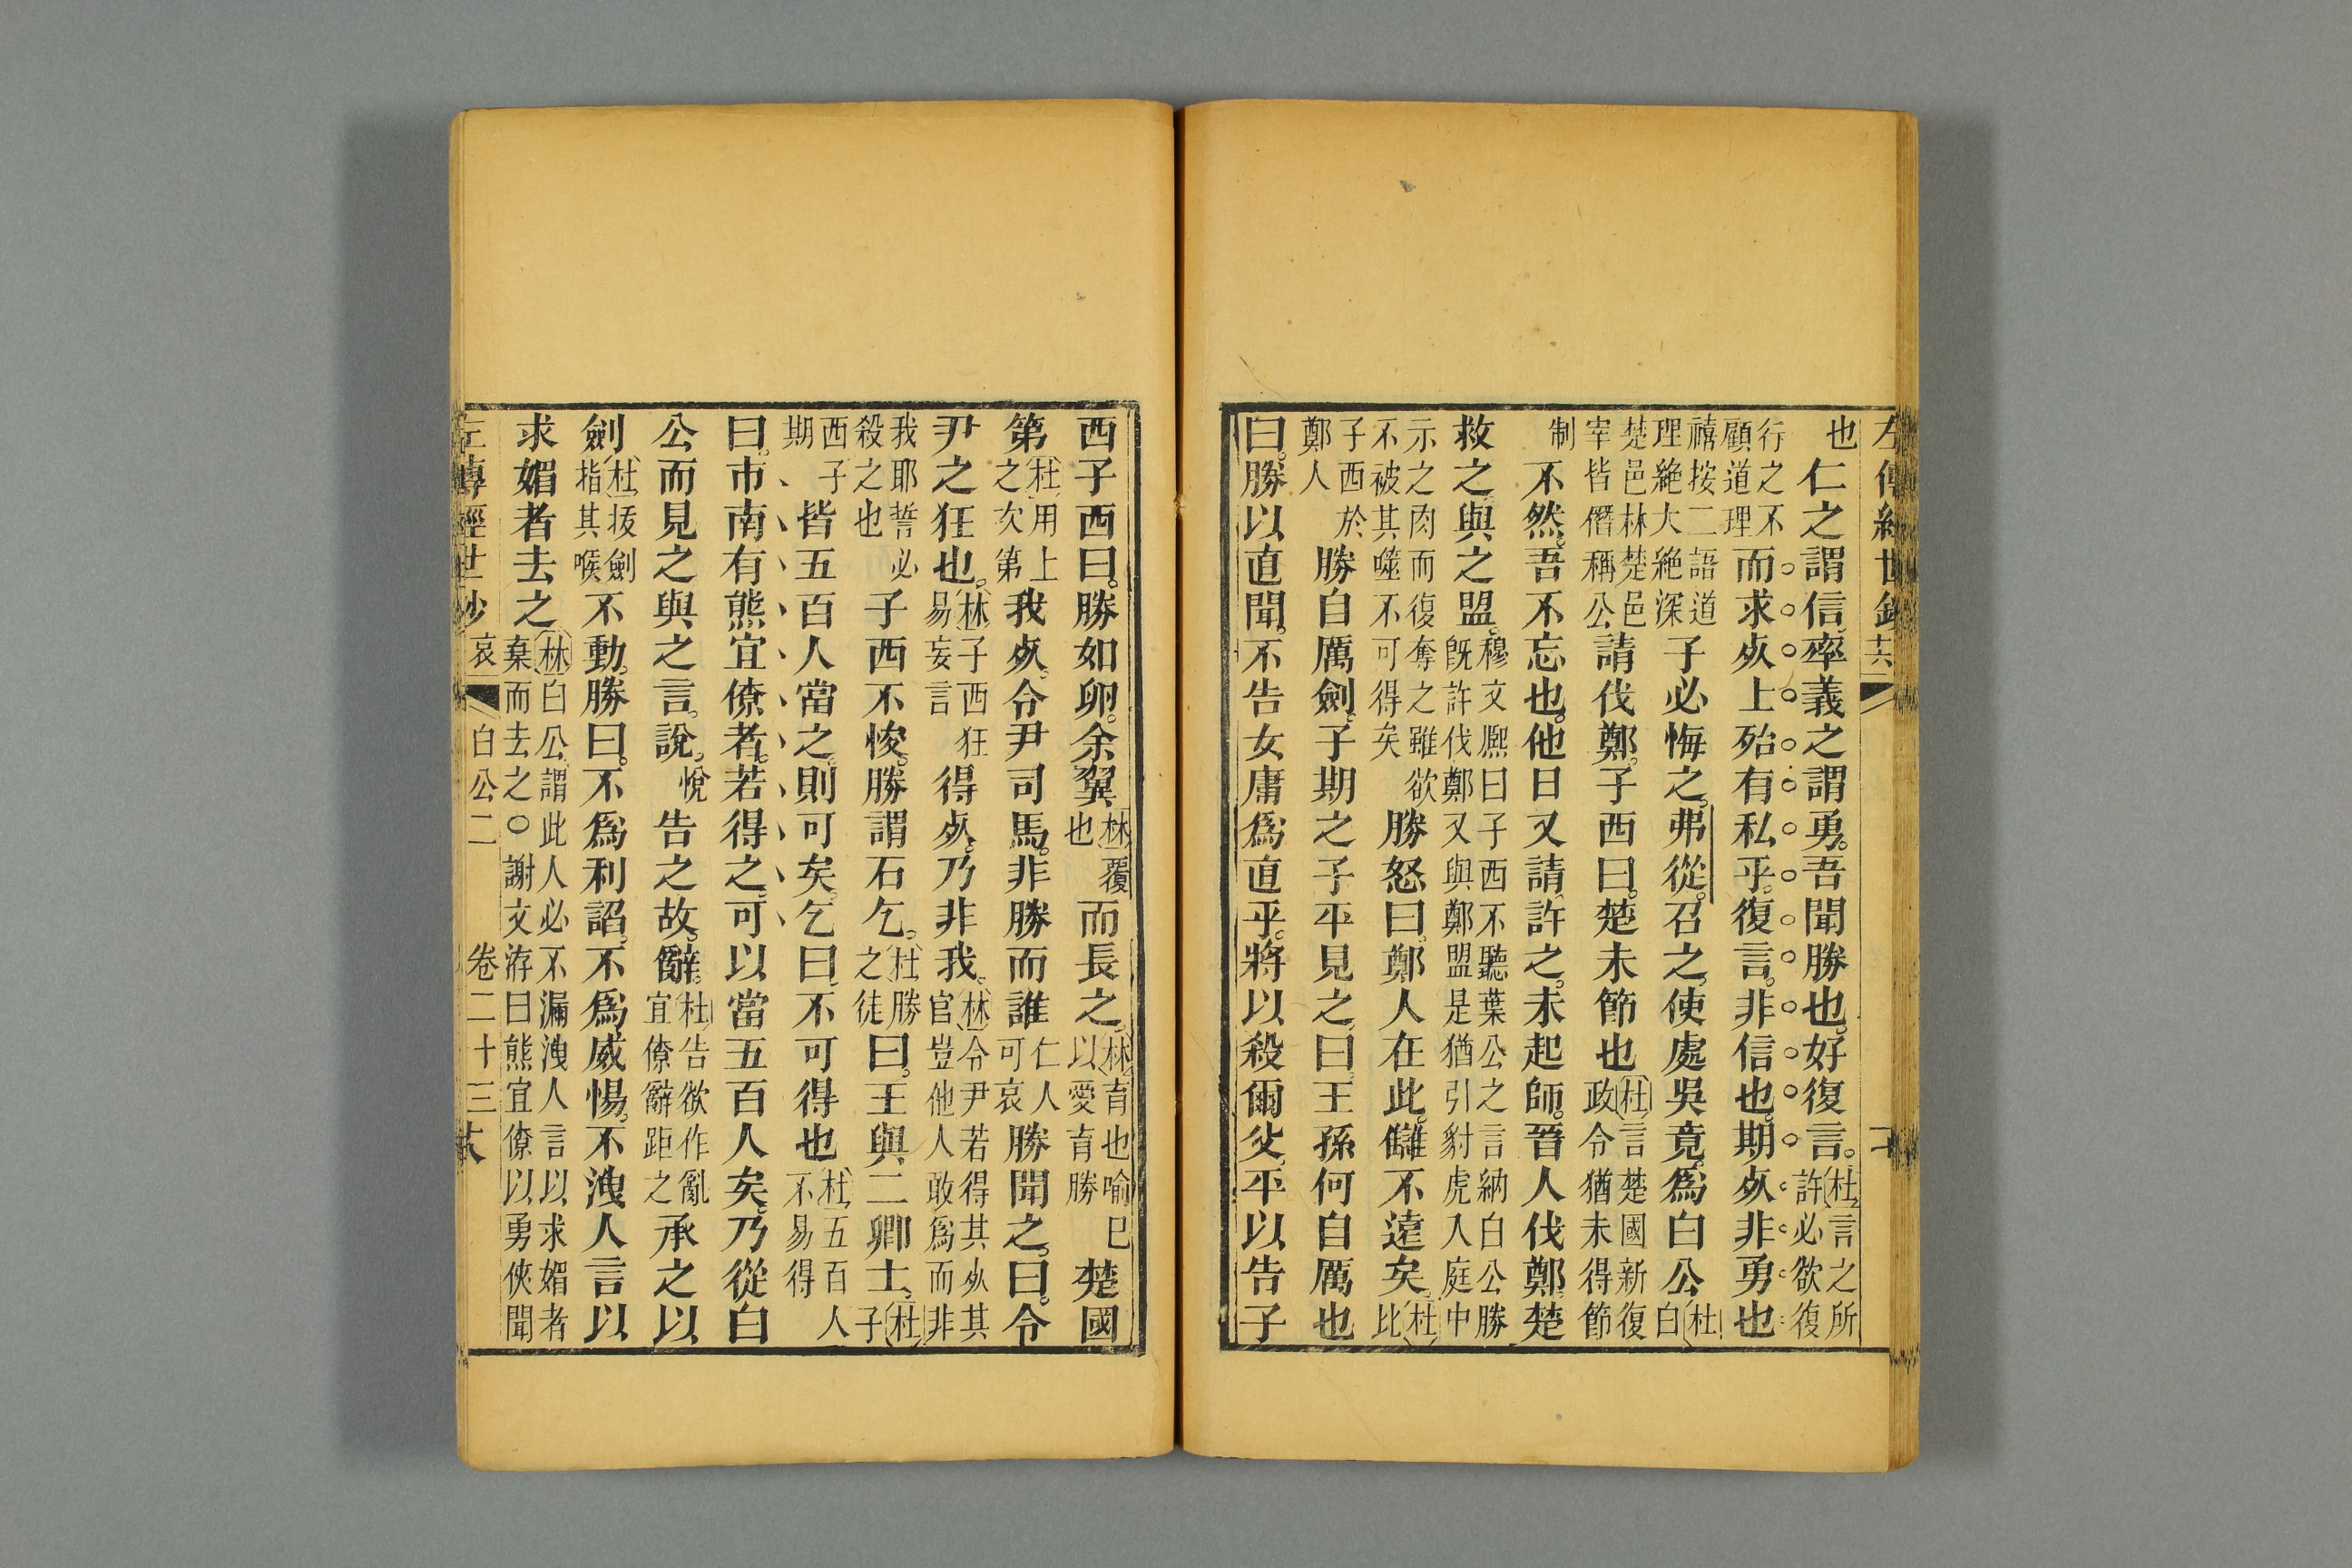 左傳經世鈔 十六
也仁之謂信率義之謂勇。吾聞勝也好復言。杜言之所許必欲復
行之不顧道理而求死上殆有私乎。復言。非信也。期死非勇也
禧按二語道理絶大絶深子必悔之。弗從。召之使處吳竟。爲白公杜白
楚邑林楚邑宰皆僭稱公請伐鄭。子西曰。楚未節也杜言楚國新復政令猶未得節
制不然。吾不忘也。他日又請許之。未起師。晉人伐鄭。楚
救之與之盟。穆文熈曰子西不聽葉公之言納白公勝既許伐鄭又與鄭盟是猶引豺虎入庭中
示之肉而復奪之雖欲不被其噬不可得矣勝怒曰。鄭人在此。讎不遠矣。杜比
子西於鄭人勝自厲劍。子期之子平見之。曰。王孫何自厲也
曰。勝以直聞。不告女庸爲直乎。將以殺爾父。平以告子
西子西曰。勝如卵。余翼林覆也而長之。林育也喻已以愛育勝楚國
第杜用上之次第我死。令尹司馬。非勝而誰仁人可哀勝聞之。曰。令
尹之狂也。林子西狂易妄言得死。乃非我。林令尹若得其死其官豈他人敢爲而非
我耶誓必殺之也子西不悛。勝謂石乞。杜勝之徒曰。王與二卿士。杜子
西子期皆五百人當之。則可矣。乞曰。不可得也杜五百人不易得
曰。市南有熊宜僚者。若得之。可以當五百人矣。乃從白
公而見之與之言。說。悅告之故。辭。杜告欲作亂宜僚辭距之承之以
劍杜拔劍指其喉不動。勝曰。不爲利諂。不爲威惕。不洩人言以
求媚者去之林白公謂此人必不漏洩人言以求媚者棄而去之〇謝文洊曰熊宜僚以勇俠聞
左傳經世鈔 哀 白公二 卷二十三